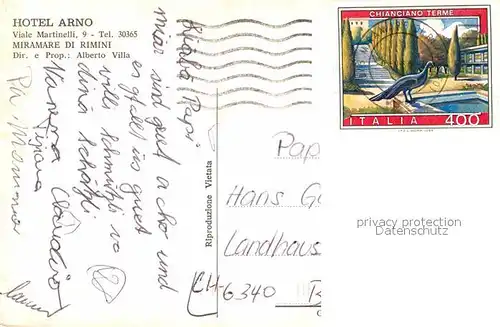 HOTEL ARNO
Viale Martinelli, 9 - Tel. 30365
MIRAMARE DI RIMINI
Dir. e Prop.: Alberto Villa
Papi
miär sind guet a cho und
es gfallt üs guet
villi schmützli vo
dina schätzli
Claudio
Riproduzione Vietata
CHIANCIANO TERME
ITALIA 400
Pap
Hans G
Landhaus
CH-6340 B
privacy protection
Datenschutz